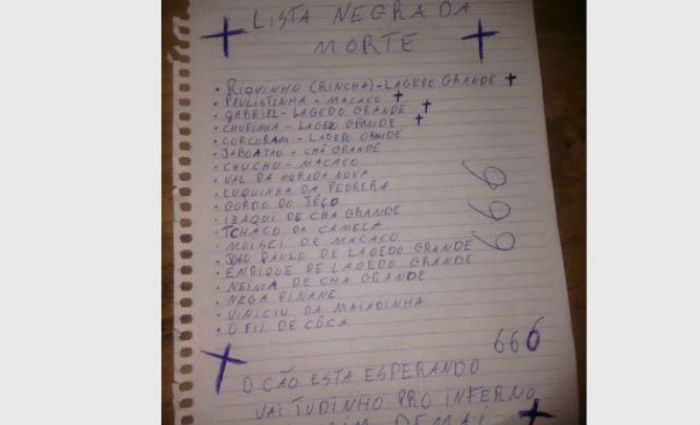 LISTA NEGRA DA
MORTE
• RIQUINHO (RINCHA) - LAGEDO GRANDE
• PAULISTINHA - MACACO
• GABRIEL - LAGEDO GRANDE
• CHUPINHA - LAGEDO GRANDE
• CORCORAM - LAGEDO GRANDE
• JABOATAO - CHÃ GRANDE
• CHUCHU - MACACO
• VAL DA MORADA NOVA
• LUQUINHA DA PEDRERA
• GORDO DO JEGO
• IZAQUI DE CHA GRANDE
• TCHACO DA CAMELA
• MOISEI DE MACACO
• JOAO PAULO DE LAGEDO GRANDE
• ENRIQUE DE LAGEDO GRANDE
• NEIMA DE CHA GRANDE
• NEGA PINANE
• VINICIU DA MAIADINHA
• O FII DE CÔCA
666
666
O CÃO ESTA ESPERANDO
VAI TUDINHO PRO INFERNO
DEMAI